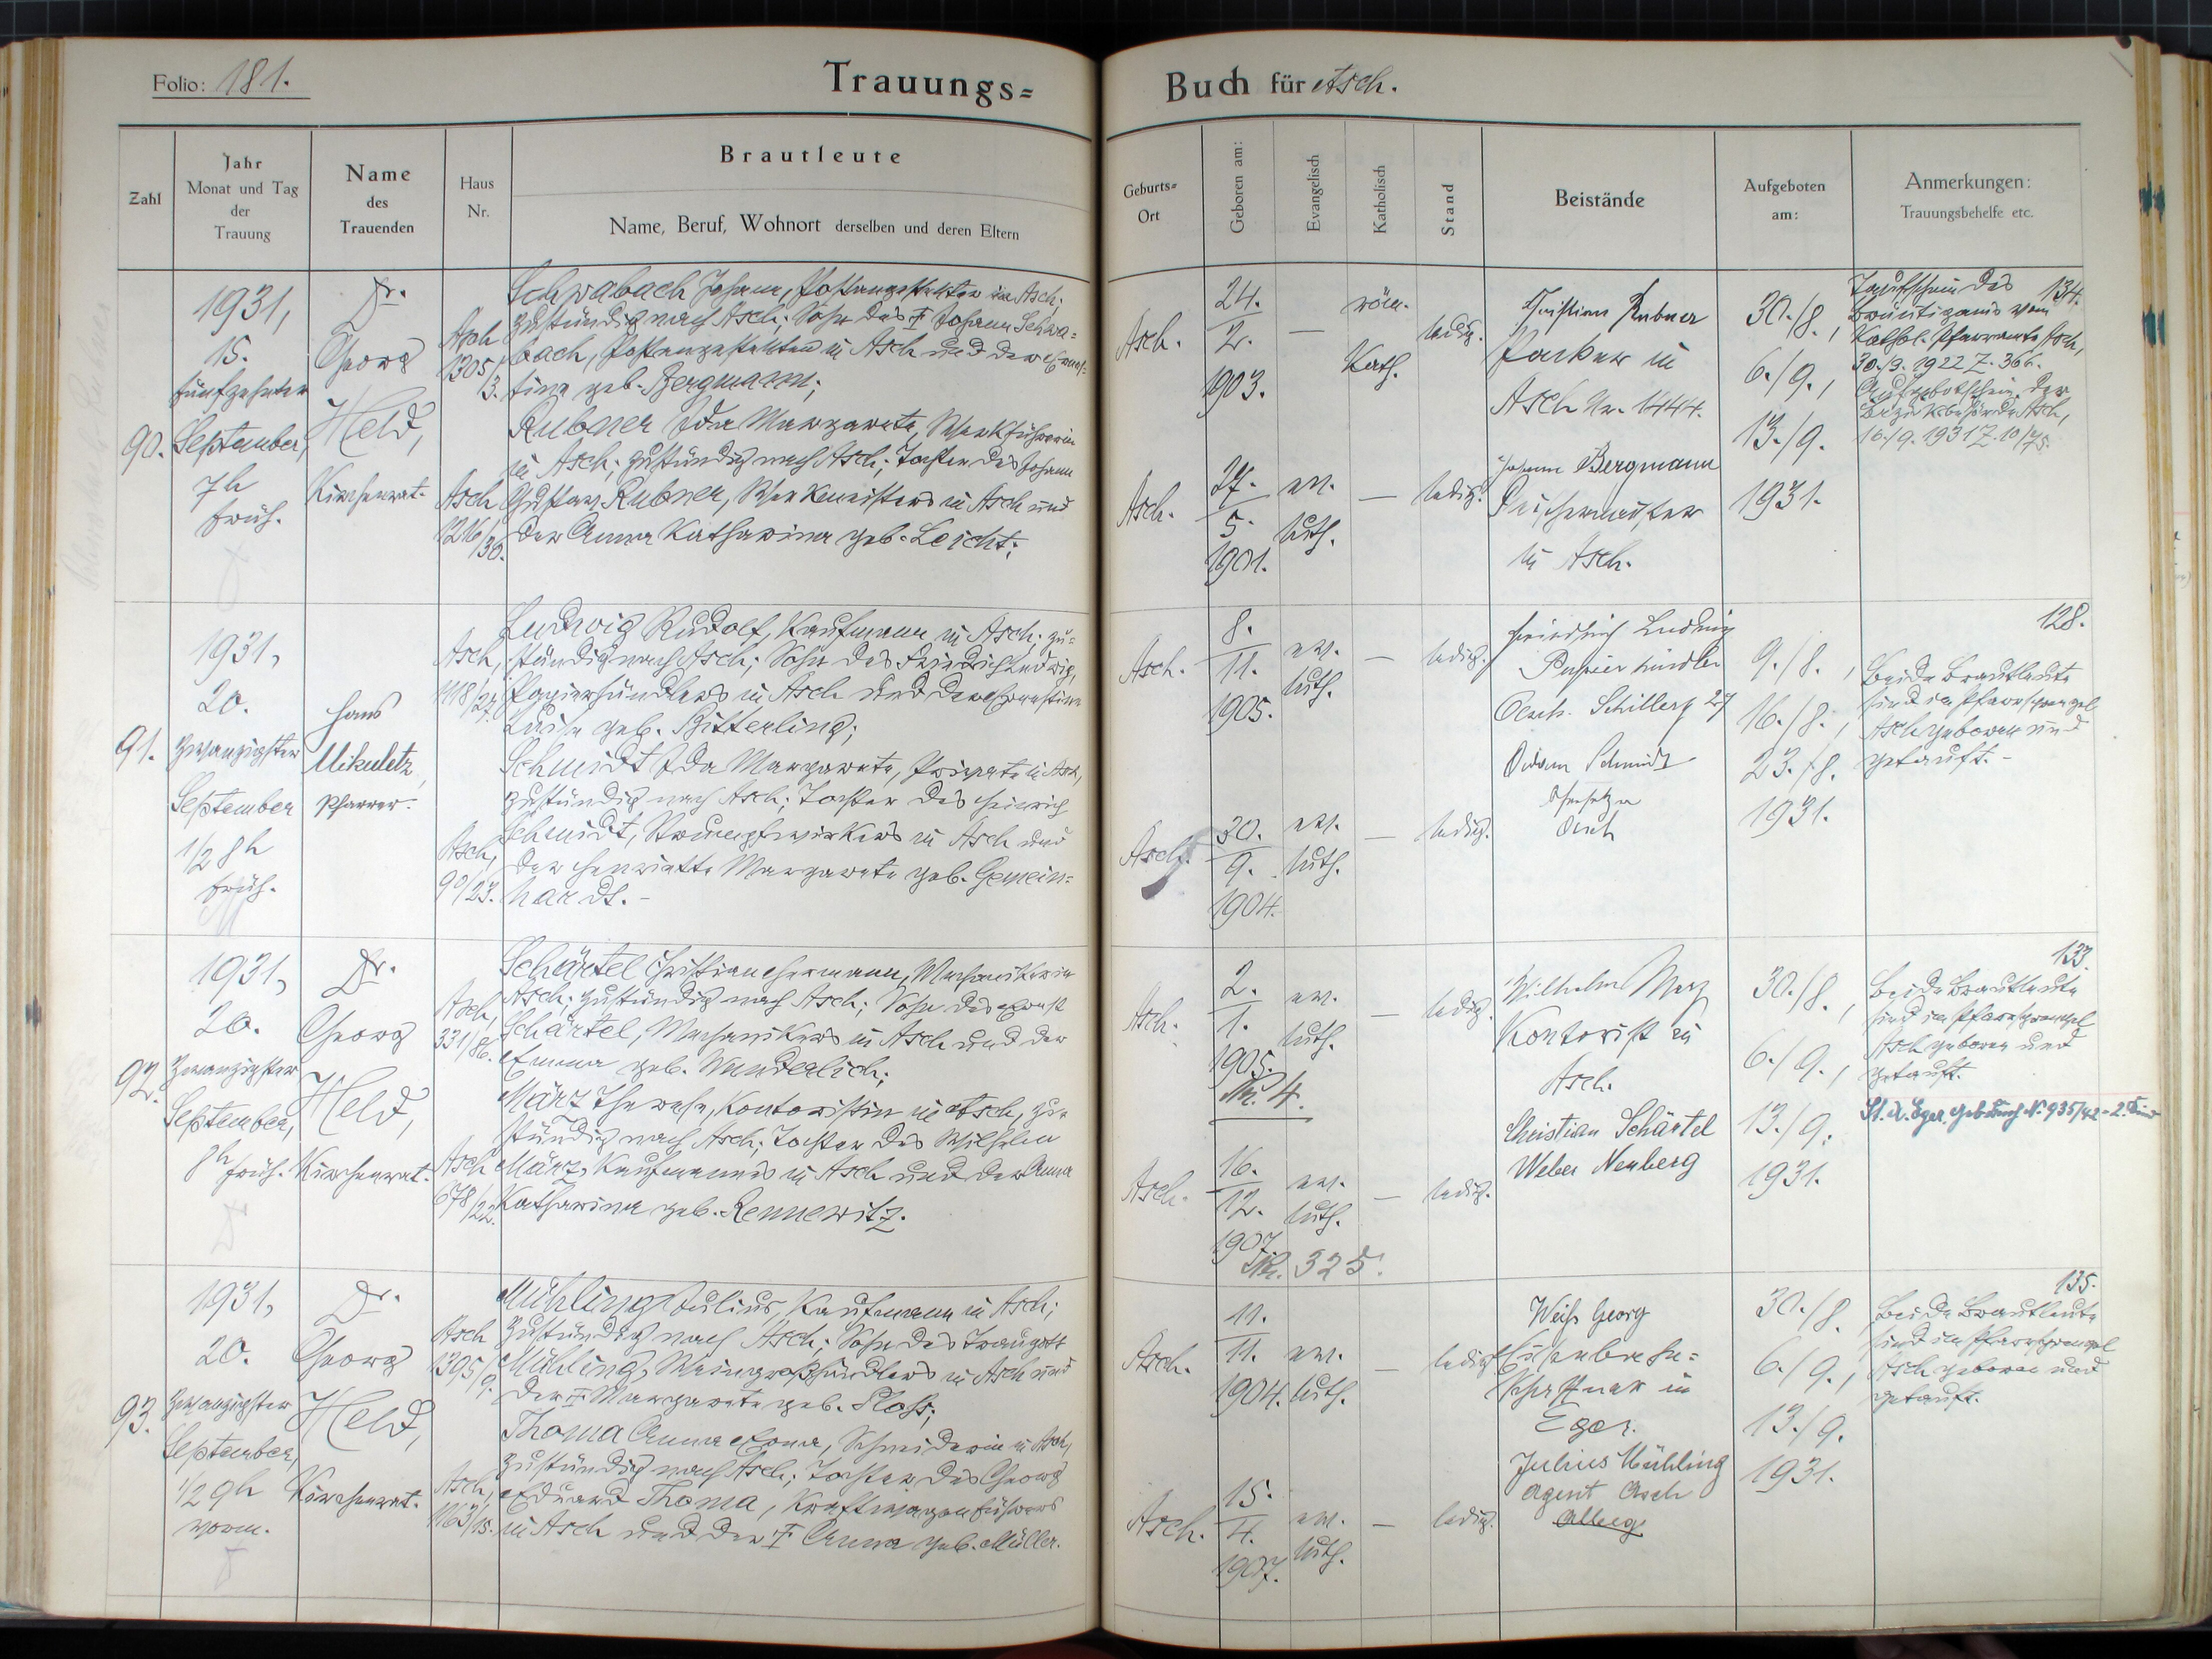 Folio: 181.
Trauungs=
Buch für Asch.
Zahl
Jahr
Monat und Tag
der
Trauung
Name
des
Trauenden
Haus
Nr.
Brautleute
Name, Beruf, Wohnort derselben und deren Eltern
Geburts=
Ort
Geboren am:
Evangelisch
Katholisch
Stand
Beistände
Aufgeboten
am:
Anmerkungen:
Trauungsbehelfe etc.
90.
1931,
15.
fünfzehnter
September,
7h
früh.
Dr.
Georg
Held,
Kirchenrat.
Asch
1305/
3.
Schwabach Johann, Postangestellter in Asch;
zuständig nach Asch; Sohn des † Johann Schwa=
bach, Postangestellten in Asch und der Ernes=
tina geb. Bergmann;
Asch
1216/
30.
Rubner Ida Margareta, Werkführerin
in Asch; zuständig nach Asch; Tochter des Johann
Gustav Rubner, Werkmeisters in Asch und
der Anna Katharina geb. Leicht;
Asch.
24.
2.
1903.
—
röm.
Kath.
ledig.
Asch.
27.
5.
1901.
ev.
luth.
—
ledig.
Christian Rubner
Packer in
Asch Nr. 1444.
Johann Bergmann
Tischermeister
in Asch.
30./8.,
6./9.,
13./9.
1931.
134.
Taufschein des
Bräutigams vom
Kathol. Pfarramte Asch,
30./9. 1922 Z. 366.
Aufgebotschein der
Bezirksbehörde Asch,
16./9. 1931 Z. 10/75.
91.
1931,
20.
zwanzigster
September
1/2 8h
früh.
Hans
Mikuletz,
Pfarrer.
Asch,
1118/27.
Ludwig Rudolf, Kaufmann in Asch; zu=
ständig nach Asch; Sohn des Friedrich Ludwig,
Papierhändlers in Asch und der Ernestine
Luise geb. Bitterling;
Asch,
90/23.
Schmidt Ida Margareta, Private in Asch,
zuständig nach Asch; Tochter des Heinrich
Schmidt, Strumpfwirkers in Asch und
der Henriette Margareta geb. Gemein=
hardt. -
Asch.
8.
11.
1905.
ev.
luth.
—
ledig.
Asch.
30.
9.
1904.
ev.
luth.
—
ledig.
Friedrich Ludwig
Papierhändler
Asch. Schillerg 27
Adam Schmidt
Asch
9./8.,
16./8.,
23./8.
1931.
128.
Beide Brautleute
sind im Pfarrsprengel
Asch geboren und
getauft. -
92.
1931,
20.
zwanzigster
September,
8h
früh.
Dr.
Georg
Held,
Kirchenrat.
Asch,
331/86.
Schärtel Christian Hermann, Mechaniker in
Asch; zuständig nach Asch; Sohn des Ernst
Schärtel, Mechanikers in Asch und der
Emma geb. Wunderlich;
Asch
678/22.
März Therese, Kontoristin in Asch, zu=
ständig nach Asch; Tochter des Wilhelm
März, Kaufmannes in Asch und der Anna
Katharina geb. Rennewitz.
Asch.
2.
1.
1905.
Nr. 4.
ev.
luth.
—
ledig.
Asch.
16.
12.
1907.
Nr. 325.
ev.
luth.
—
ledig.
Wilhelm Merz
Kontorist in
Asch.
Christian Schärtel
Weber Neuberg
30./8.,
6./9.,
13./9.
1931.
133.
Beide Brautleute
sind im Pfarrsprengel
Asch geboren und
getauft.
St. A. Eger, Geb. Buch Nr. 935/42 - 2. Kind
93.
1931,
20.
zwanzigster
September,
1/2 9h
vorm.
Dr.
Georg
Held,
Kirchenrat.
Asch
1395/
9.
Mühling Julius, Kaufmann in Asch;
zuständig nach Asch; Sohn des Traugott
Mühling, Weingroßhändlers in Asch und
der II Margareta geb. Ploß;
Asch,
1163/15.
Thoma Anna Erna, Schneiderin in Asch,
zuständig nach Asch; Tochter des Georg
Eduard Thoma, Kraftwagenführers
in Asch und der † Anna geb. Müller.
Asch.
11.
11.
1904.
ev.
luth.
—
ledig
Asch.
15.
4.
1907.
ev.
luth.
—
ledig.
Weiß Georg
in
Eger.
Julius Mühling
Agent Asch
30./8.
6./9.,
13./9.
1931.
135.
Beide Brautleute
sind im Pfarrsprengel
Asch geboren und
getauft.